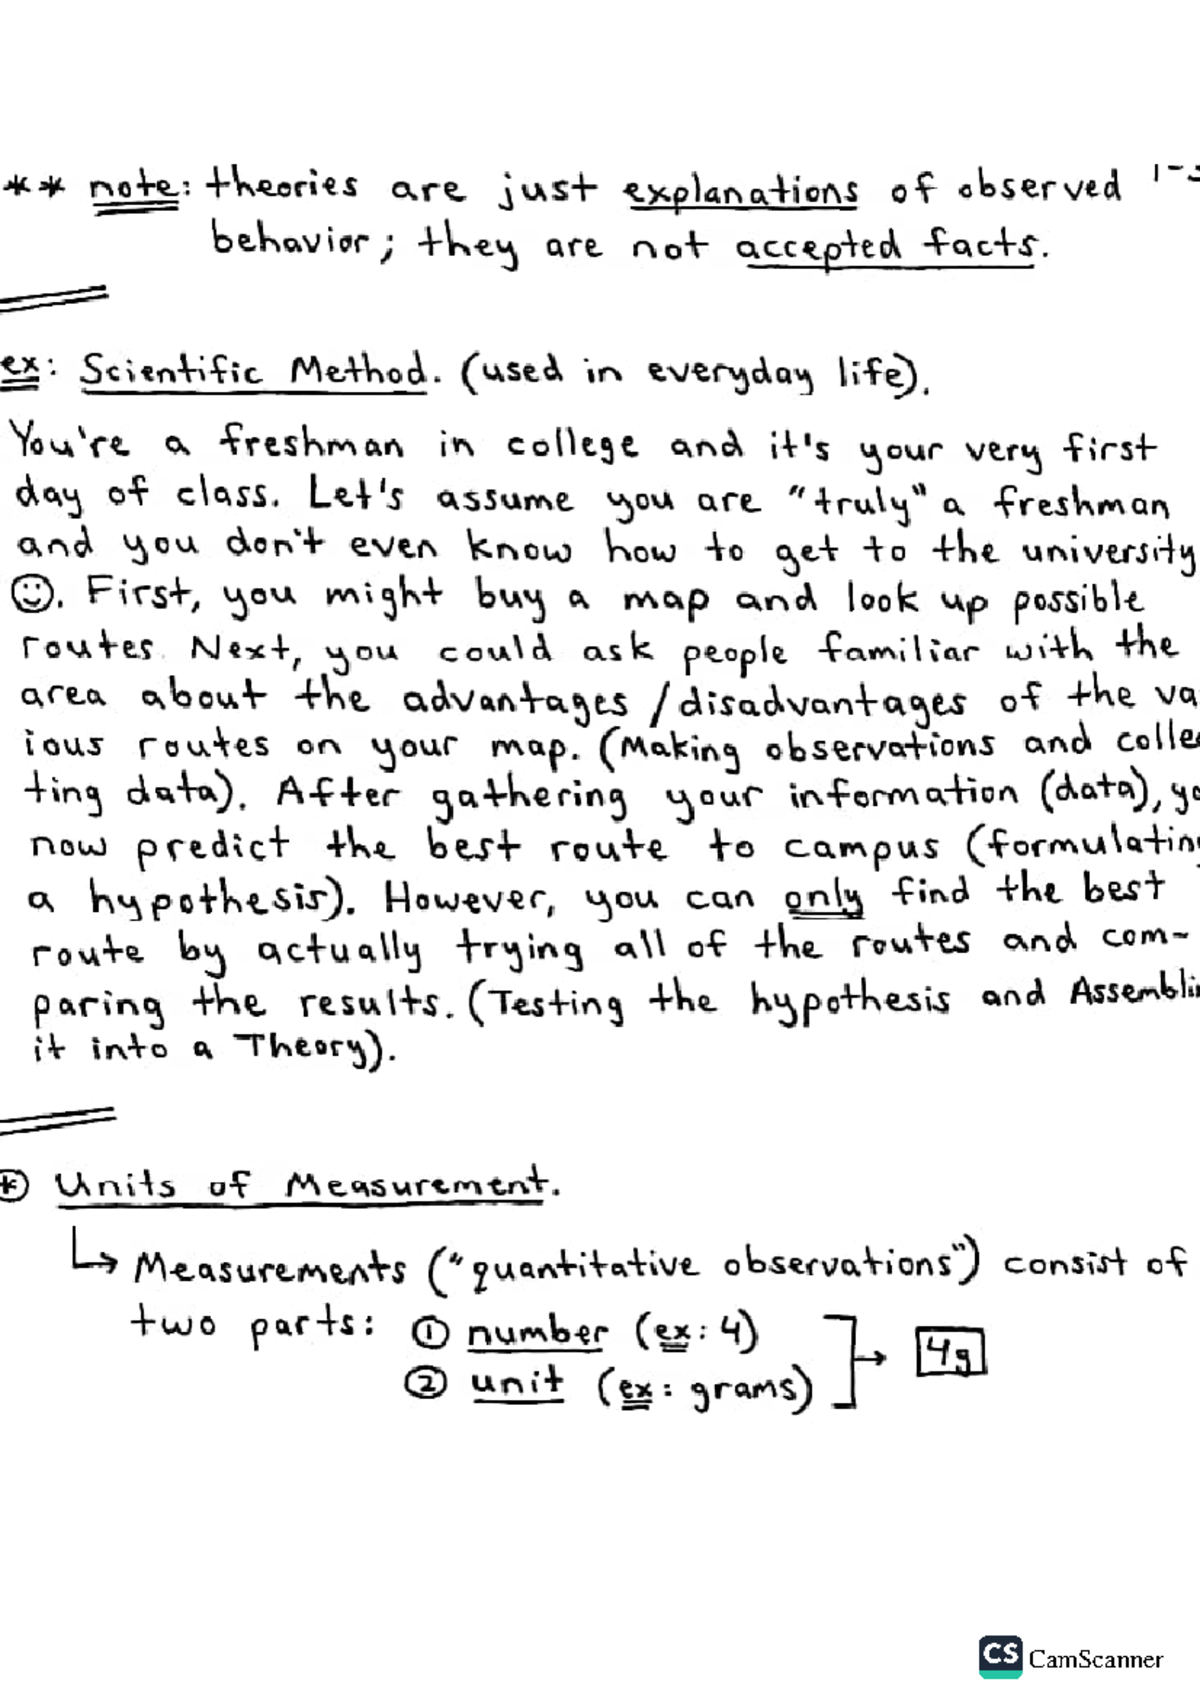 ** note: theories are just explanations of observed
behavior; they are not accepted facts.
ex: Scientific Method. (used in everyday life).
You're a freshman in college and it's your very first
day of class. Let's assume you are "truly" a freshman
and you don't even know how to get to the university
☺. First, you might buy a map and look up possible
routes. Next, you could ask people familiar with the
area about the advantages/disadvantages of the va
ious routes on your map. (Making observations and collec
ting data). After gathering your information (data), yo
now predict the best route to campus (formulating
a hypothesis). However, you can only find the best
route by actually trying all of the routes and com-
paring the results. (Testing the hypothesis and Assemblin
it into a Theory).
* Units of Measurement.
↳ Measurements ("quantitative observations") consist of
two parts: ① number (ex: 4)
② unit (ex: grams)
→ 4g
CS CamScanner